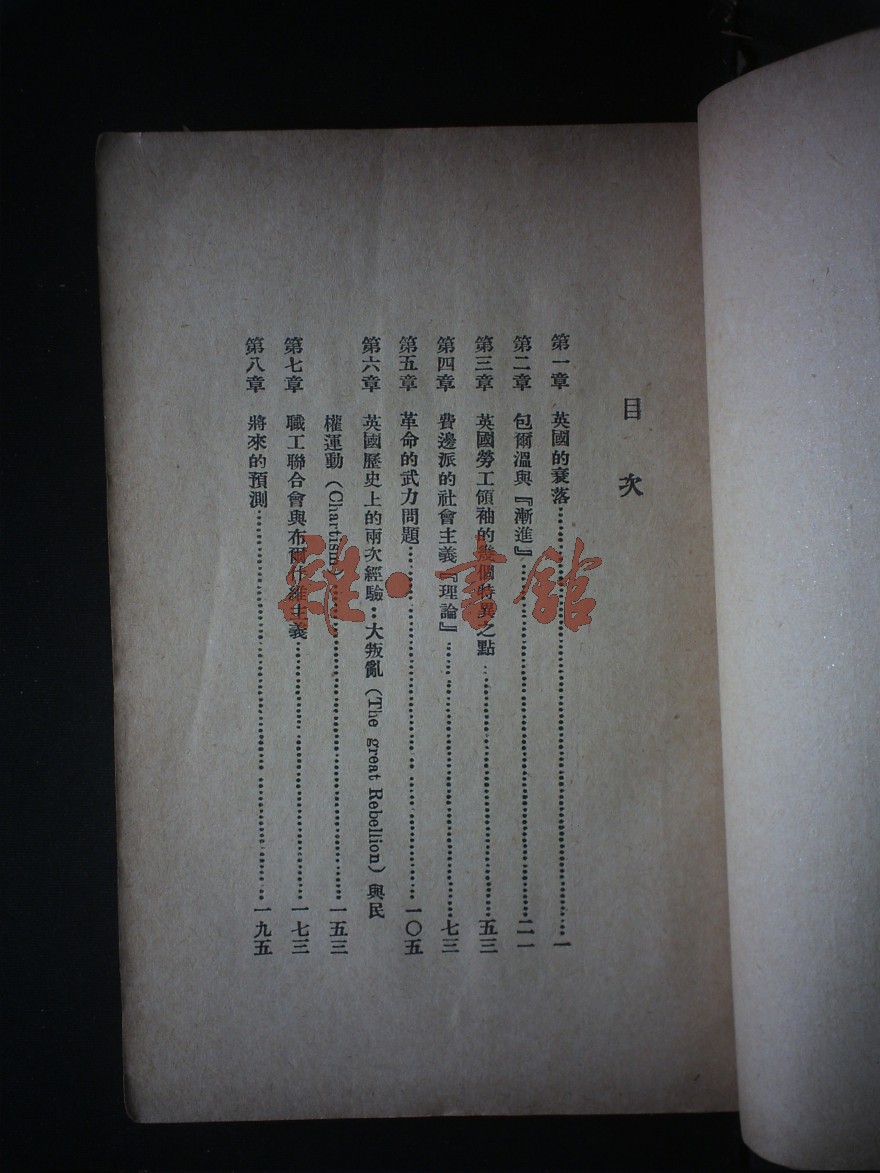 目次
第一章 英國的衰落……一
第二章 包爾溫與『漸進』……二一
第三章 英國勞工領袖的幾個特異之點……五三
第四章 費邊派的社會主義『理論』……七三
第五章 革命的武力問題……一〇五
第六章 英國歷史上的兩次經驗：大叛亂（The great Rebellion）與民
權運動（Chartism）……一五三
第七章 職工聯合會與布爾什維主義……一七三
第八章 將來的預測……一九五
雜·書館